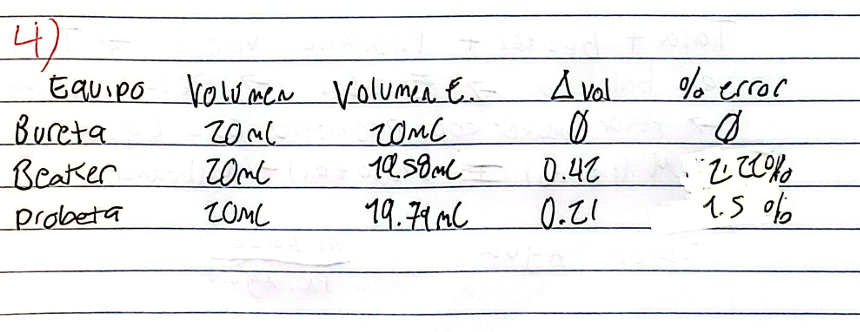 4)
Equipo Volumen Volumen E. Δ vol % error
Bureta 20mL 20mL Ø Ø
Beaker 20mL 19.58mL 0.42 2.22%
probeta 20mL 19.79mL 0.21 1.5 %